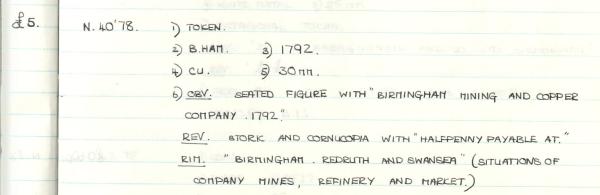 £5. N.40'78. 1) TOKEN.
2) B.HAM. 3) 1792.
4) CU. 5) 30mm.
6) OBV. SEATED FIGURE WITH "BIRMINGHAM MINING AND COPPER
COMPANY . 1792."
REV. STORK AND CORNUCOPIA WITH "HALFPENNY PAYABLE AT."
RIM. "BIRMINGHAM . REDRUTH AND SWANSEA" (SITUATIONS OF
COMPANY MINES, REFINERY AND MARKET.)